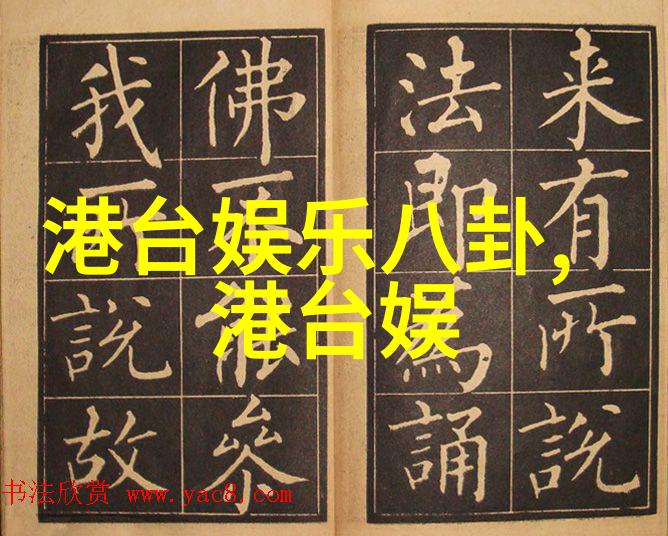 来有所說
法即為誦
佛能叅
我所說故
港台娱乐八卦,
港台娱
书法欣赏 www.yac8.com